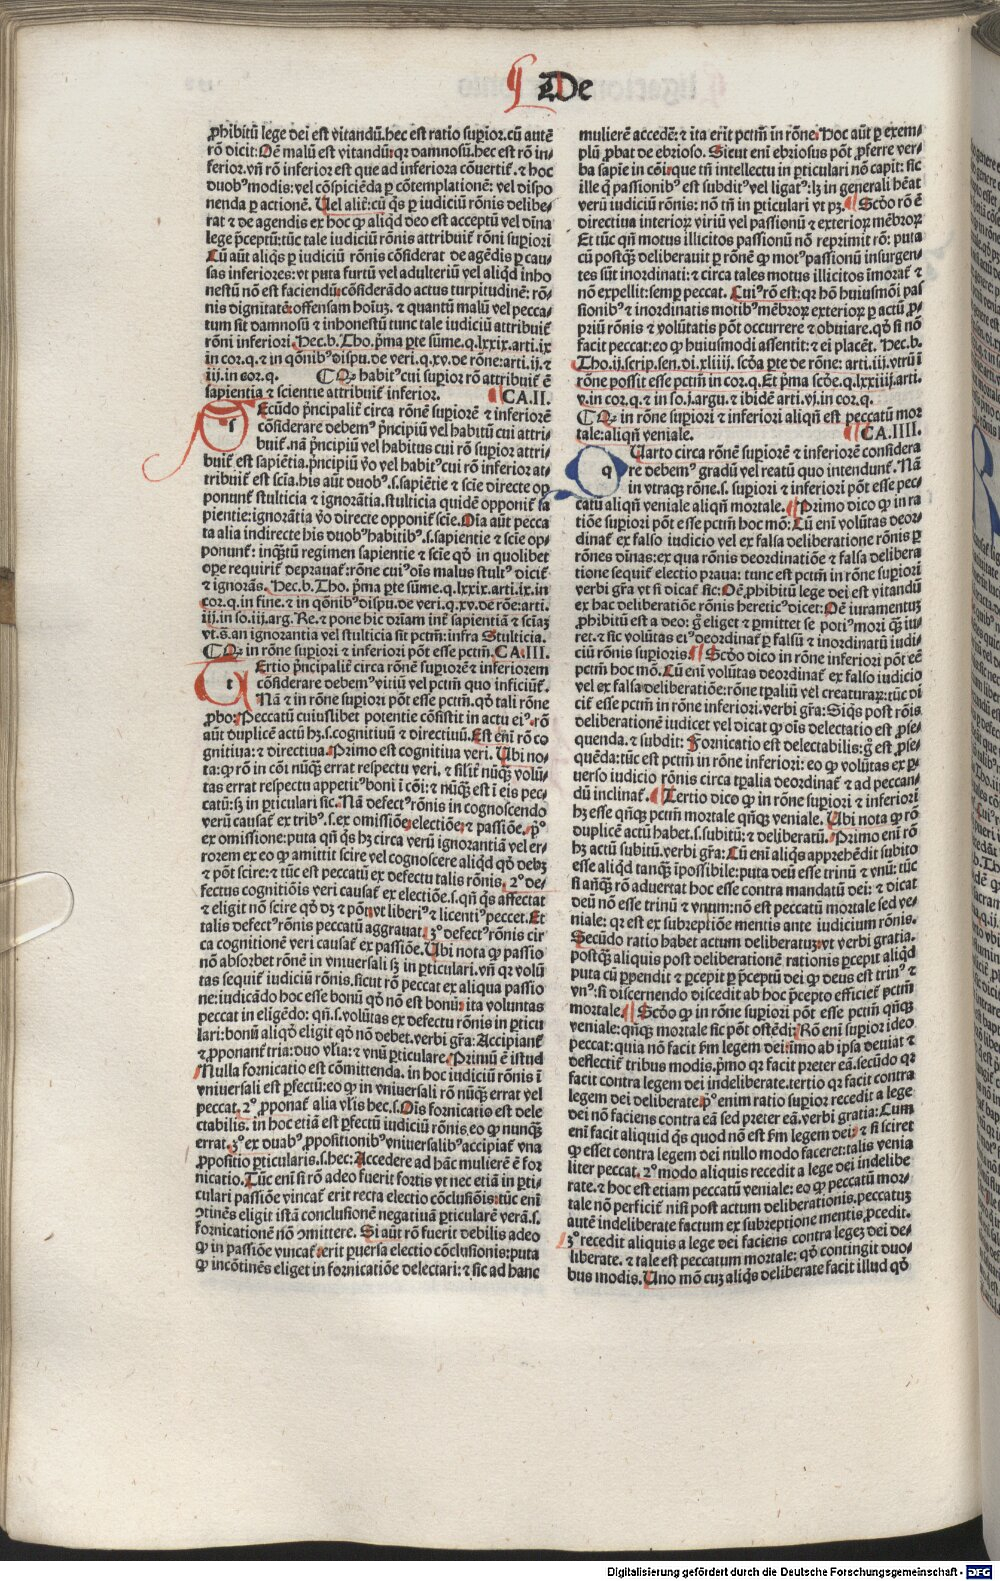 De
ꝓhibitū lege dei est vitandū.hec est ratio supior.cū autē
rō dicit:Oē malū est vitandū:qꝛ damnosū.hec est rō in-
ferior.vñ rō inferior est que ad inferiora cōuertit̄.⁊ hoc
duobꝰ modis:vel cōspiciēda ꝑ cōtemplationē: vel dispo
nenda ꝑ actionē. Uel aliē:cū q̄s ꝑ iudiciū rōnis delibe-
rat ⁊ de agendis ex hoc ꝙ aliqd deo est acceptū vel diīna
lege p̄ceptū:tūc tale iudiciū rōnis attribuit̄ rōni supiori
Cū aūt aliqs ꝑ iudiciū rōnis cōsiderat de agēdis ꝑ cau-
sas inferiores:vt puta furtū vel adulteriū vel aliqd inho
nestū nō est faciendū:cōsiderādo actus turpitudinē: rō-
nis dignitatē:offensam hoīuꝫ. ⁊ quantū malū vel pecca-
tum sit damnosū ⁊ inhonestū tunc tale iudiciū attribuit̄
rōni inferiori.Hec.b.Tho.p̄ma ꝑte sūme.q.lxxix.arti.ix
in cor.q.⁊ in qōnibꝰ dispu.de veri.q.xv.de rōne:arti.ij.⁊
iij.in cor.q. ¶ Qꝫ habitꝰ cui supior rō attribuit̄ ē
sapientia ⁊ scientie attribuit̄ inferior. CA.II.
SEcūdo p̄ncipalit̄ circa rōnē supiorē ⁊ inferiorē
cōsiderare debemꝰ p̄ncipiū vel habitū cui attri-
buit̄.nā p̄ncipiū vel habitus cui rō supior attri-
buit̄ est sapiētia.p̄ncipiū v̄o vel habitꝰ cui rō inferior at-
tribuit̄ est scīa.his aūt duobꝰ.s.sapiētie ⁊ scīe directe op
ponunt̄ stulticia ⁊ ignorātia.stulticia quidē opponit̄ sa
pientie:ignorātia v̄o directe opponit̄ scīe.Oīa aūt pecca
ta alia indirecte his duobꝰ habitibꝰ.s.sapientie ⁊ scīe op-
ponunt̄: inqtū regimen sapientie ⁊ scīe qd in quolibet
ope requirit̄ deprauat̄:rōne cuiꝰ oīs malus stultꝰ dicit̄
⁊ ignorās. Hec.b.Tho. p̄ma ꝑte sūme.q.lxxix.arti.ix.in
cor.q.in fine.⁊ in qōnibꝰ dispu.de veri.q.xv.de rōe:arti.
iij.in so.iij.arg.Re.⁊ pone hic dr̄iam int̄ sapientiā ⁊ sciāꝫ
vt.s.an ignorantia vel stulticia sit pctm̄:infra Stulticia.
¶ Qꝫ in rōne supiori ⁊ inferiori pōt esse pctm̄.CA.III.
TErtio p̄ncipalit̄ circa rōnē supiorē ⁊ inferiorem
cōsiderare debemꝰ vitiū vel pctm̄ quo inficiūt̄.
Nā ⁊ in rōne supiori pōt esse pctm̄.qd tali rōne
ꝓbo:Peccatū cuiuslibet potentie cōsistit in actu eiꝰ. rō
aūt duplicē actū hꝫ.s.cognitiuū ⁊ directiuū.Est enī rō co
gnitiua: ⁊ directiua.Primo est cognitiua veri. Ubi no-
ta:ꝙ rō in cōi nūqꝫ errat respectu veri. ⁊ silit̄ nūqꝫ volū-
tas errat respectu appetitꝰ boni ī cōi: ⁊ nūqꝫ est ī eis pec-
catū:sꝫ in ꝑticulari sic. Nā defectꝰ rōnis in cognoscendo
verū causat̄ ex tribꝰ.s.ex omissiōe:electiōe: ⁊ passiōe. p̄ᵒ
ex omissione:puta qn̄ qs hꝫ circa verū ignorantiā vel er-
rorem ex eo ꝙ amittit scire vel cognoscere aliqd qd debꝫ
⁊ pōt scire: ⁊ tūc est peccatū ex defectu talis rōnis. 2ᵒ de-
fectus cognitiōis veri causat̄ ex electiōe.s.qn̄ qs affectat
⁊ eligit nō scire qd dꝫ ⁊ pōt:vt liberiꝰ ⁊ licentiꝰ peccet.Et
talis defectꝰ rōnis peccatū aggrauat. 3ᵒ defectꝰ rōnis cir
ca cognitionē veri causat̄ ex passiōe.Ubi nota ꝙ passio
nō absorbet rōnē in vniuersali sꝫ in ꝑticulari.vñ qꝛ volū
tas sequit̄ iudiciū rōnis.sicut rō peccat ex aliqua passio
ne:iudicādo hoc esse bonū qd nō est bonū:ita voluntas
peccat in eligēdo: qn̄.s.volūtas ex defectu rōnis in ꝑticu
lari:bonū aliqd eligit qd nō debet.verbi gr̄a: Accipiant̄
⁊ ꝓponant̄ tria:duo vlia: ⁊ vnū ꝑticulare.Primū ē istud
Nulla fornicatio est cōmittenda. in hoc iudiciū rōnis ī
vniuersali est ꝑfectū:eo ꝙ in vniuersali rō nūqꝫ errat vel
peccat. 2ᵒ ꝓponat̄ alia vlis hec.s.Oīs fornicatio est dele
ctabilis. in hoc etiā est ꝑfectū iudiciū rōnis.eo ꝙ nunqꝫ
errat. 3ᵒ ex duabꝰ ꝓpositionibꝰ vniuersalibꝰ accipiat̄ vna
ꝓpositio ꝑticularis.s.hec:Accedere ad hāc mulierē ē for
nicatio.Tūc enī si rō adeo fuerit fortis vt nec etiā in ꝑti-
culari passiōe vincat̄ erit recta electio cōclusiōis:tūc enī
ↄtinēs eligit istā conclusionē negatiuā ꝑticularē verā.s.
fornicationē nō ↄmittere. Si aūt rō fuerit debilis adeo
ꝙ in passiōe vincat̄:erit puersa electio cōclusionis:puta
ꝙ incōtinēs eliget in fornicatiōe delectari: ⁊ sic ad hanc
mulierē accedē: ⁊ ita erit pctm̄ in rōne.Hoc aūt ꝑ exem-
plū ꝓbat de ebrioso. Sicut enī ebriosus pōt ꝓferre ver-
ba sapie in cōi:que tn̄ intellectu in ꝑticulari nō capit: sic
ille q passionibꝰ est subditꝰ vel ligatꝰ:lꝫ in generali heat
verū iudiciū rōnis: nō tn̄ in ꝑticulari vt pꝫ. Scdo rō ē
directiua interioꝝ viriū vel passionū ⁊ exterioꝝ mēbroꝝ
Et tūc qn̄ motus illicitos passionū nō reprimit rō: puta
cū postqꝫ deliberauit ꝑ rōnē ꝙ motꝰ passionū insurgen-
tes sūt inordinati: ⁊ circa tales motus illicitos īmorat̄ ⁊
nō expellit:semp peccat. Cuiꝰ rō est: qꝛ hō huiusmōi pas
sionibꝰ ⁊ inordinatis motibꝰ mēbroꝝ exterioꝝ ꝑ actū ꝓ-
priū rōnis ⁊ volūtatis pōt occurrere ⁊ obuiare.qd si nō
facit peccat:eo ꝙ huiusmodi assentit: ⁊ ei placēt. Hec.b.
Tho.ij.scrip.sen.di.xliiij. scda ꝑte de rōne: arti.iij.vtrū ī
rōne possit esse pctm̄ in cor.q.Et p̄ma scde.q.lxxiiij.arti.
v.in cor.q.⁊ in so.j.argu.⁊ ibidē arti.vj.in cor.q.
¶ Qꝫ in rōne supiori ⁊ inferiori aliqn̄ est peccatū mor
tale:aliqn̄ veniale. CA.IIII.
QUarto circa rōnē supiorē ⁊ inferiorē considera
re debemꝰ gradū vel reatū quo intendunt̄. Nā
in vtraqꝫ rōne.s. supiori ⁊ inferiori pōt esse pec-
catū aliqn̄ veniale aliqn̄ mortale. Primo dico ꝙ in ra
tiōe supiori pōt esse pctm̄ hoc mō: Cū enī volūtas deor-
dinat̄ ex falso iudicio vel ex falsa deliberatione rōnis ꝑ
rōnes diīnas:ex qua rōnis deordinatiōe ⁊ falsa delibera
tione sequit̄ electio praua: tunc est pctm̄ in rōne supiori
verbi gr̄a vt si dicat̄ sic: Oē ꝓhibitū lege dei est vitandū
ex hac deliberatiōe rōnis hereticꝰ dicet: Oē iuramentuꝫ
ꝓhibitū est a deo: ḡ eliget ⁊ ꝑmittet se potiꝰ mori qꝫ iu-
ret.⁊ sic volūtas eiꝰ deordinat̄ ꝑ falsū ⁊ inordinatū iudi-
ciū rōnis supioris. Scdo dico in rōne inferiori pōt eē
pctm̄ hoc mō.Cū enī volūtas deordinat̄ ex falso iudicio
vel ex falsa deliberatiōe:rōne tꝑaliū vel creaturaꝝ:tūc di
cit̄ esse pctm̄ in rōne inferiori.verbi gr̄a: Siqs post rōis
deliberationē iudicet vel dicat ꝙ oīs delectatio est ꝓse-
quenda.⁊ subdit: Fornicatio est delectabilis: ḡ est ꝓse-
quēda:tūc est pctm̄ in rōne inferiori: eo ꝙ volūtas ex ꝑ
uerso iudicio rōnis circa tꝑalia deordinat̄ ⁊ ad peccan-
dū inclinat̄. Tertio dico ꝙ in rōne supiori ⁊ inferiori
hꝫ esse qn̄qꝫ pctm̄ mortale qn̄qꝫ veniale. Ubi nota ꝙ rō
duplicē actū habet.s.subitū: ⁊ deliberatū. Primo enī rō
hꝫ actū subitū.verbi gr̄a: Cū enī aliqs apprehēdit subito
esse aliqd tanqꝫ īpossibile:puta deū esse trinū ⁊ vnū: tūc
si anqꝫ rō aduertat hoc esse contra mandatū dei: ⁊ dicat
deū nō esse trinū ⁊ vnum:nō est peccatū mortale sed ve-
niale: qꝛ est ex subreptiōe mentis ante iudicium rōnis.
Secūdo ratio habet actum deliberatuꝫ:vt verbi gratia.
postqꝫ aliquis post deliberationē rationis ꝑcepit aliqd
puta cū ꝑpendit ⁊ ꝑcepit ꝑ p̄ceptū dei ꝙ deus est trinꝰ ⁊
vnꝰ:si discernendo discedit ab hoc p̄cepto efficiet̄ pctm̄
mortale. Scdo ꝙ in rōne supiori pōt esse pctm̄ qn̄qꝫ
veniale: qn̄qꝫ mortale sic pōt ostēdi: Rō enī supior ideo
peccat:quia nō facit ẜm legem dei:īmo ab ipsa deniat ⁊
deflectit̄ tribus modis.p̄mo qꝛ facit preter eā.secūdo qꝛ
facit contra legem dei indeliberate.tertio qꝛ facit contra
legem dei deliberate.p̄ᵒ enim ratio supior recedit a lege
dei nō faciens contra eā sed preter eā.verbi gratia: Cum
enī facit aliquid qs quod nō est ẜm legem dei: ⁊ si sciret
ꝙ esset contra legem dei nullo modo faceret:talis venia
liter peccat. 2ᵒ modo aliquis recedit a lege dei indelibe
rate.⁊ hoc est etiam peccatū veniale: eo ꝙ peccatū mor-
tale nō perficit̄ nisi post actum deliberationis.peccatuꝫ
autē indeliberate factum ex subreptione mentis ꝓcedit.
3ᵒ recedit aliquis a lege dei faciens contra legeꝫ dei de-
liberate. ⁊ tale est peccatum mortale: qd contingit duo-
bus modis. Uno mō cuꝫ aliqs deliberate facit illud qd
Digitalisierung gefördert durch die Deutsche Forschungsgemeinschaft - DFG